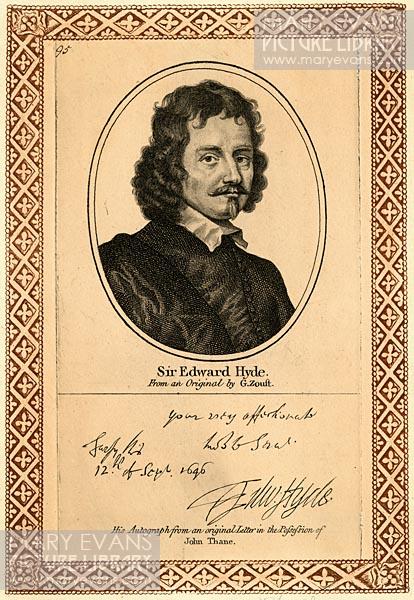 MARY EVANS
PICTURE LIBRARY
www.maryevans
95
Sir Edward Hyde.
From an Original by G. Zoust.
Your very affectionate
12th of Sept. 1646
Edw: Hyde
His Autograph from an original Letter in the Possession of
John Thane.
MARY EVANS
PICTURE LIBRARY